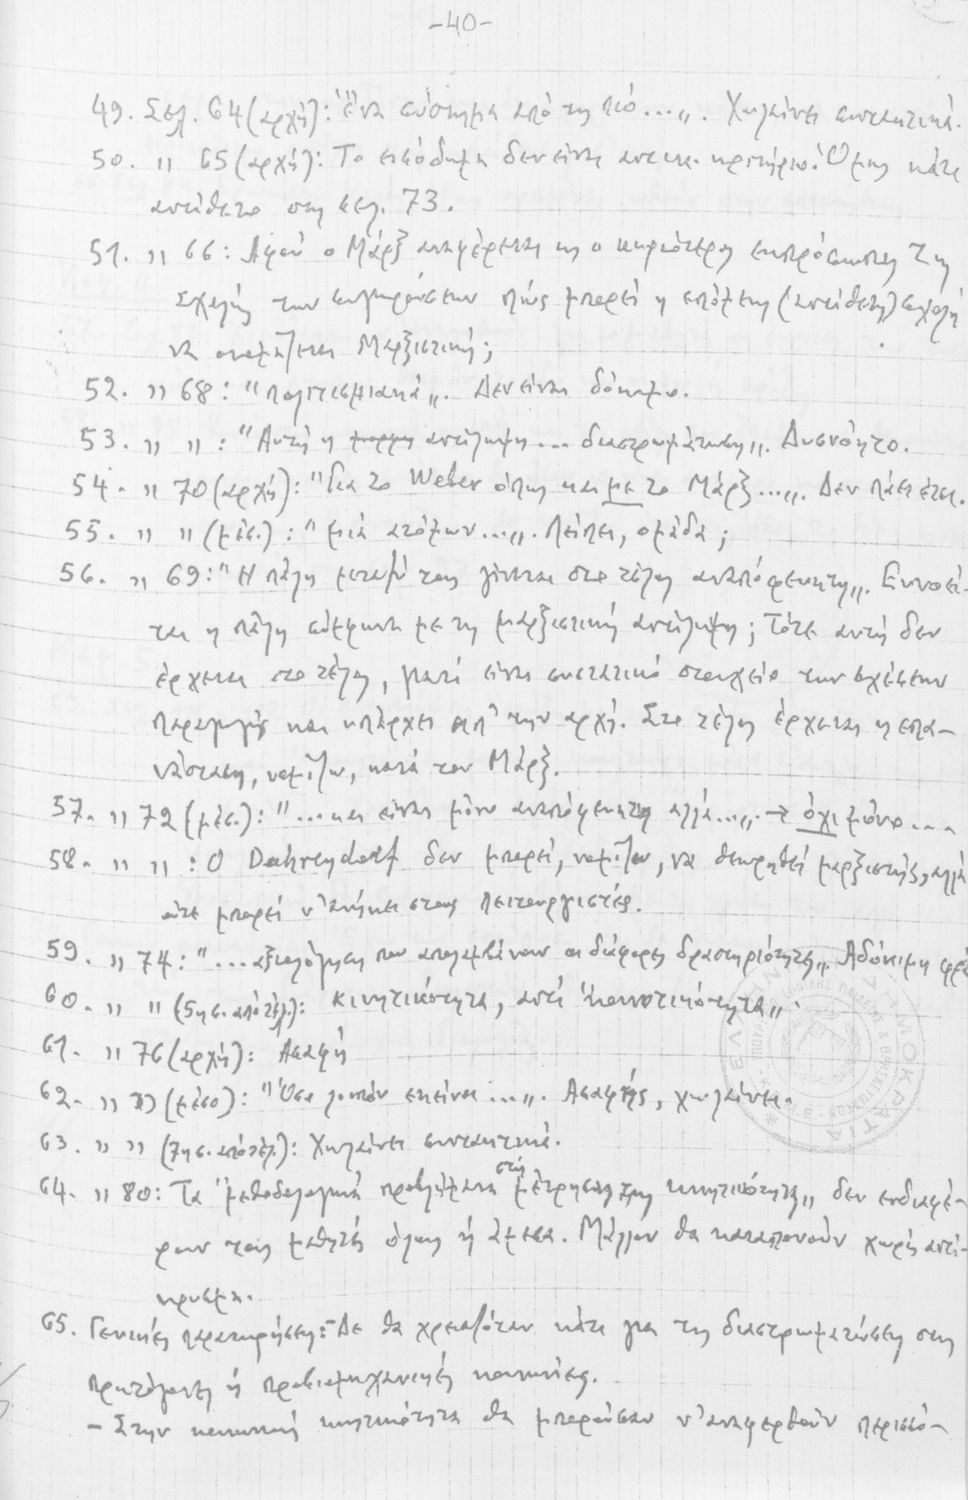 -40-
49. Σελ. 64 (αρχή): "Ένα σύστημα από τη πιό...„. Χωλαίνει συντακτικά.
50. " 65 (αρχή): Το εισόδημα δεν είναι αντικ. κριτήριο. Όμως κάτι
αντίθετο στη σελ. 73.
51. " 66: Αφού ο Μάρξ αναφέρεται ως ο κυριότερος εκπρόσωπος της
σχολής των συγκρούσεων πώς μπορεί η επόμενη (αντίθετη) σχολή
να ονομάζεται Μαρξιστική;
52. " 68: "πολιτισμιακά„. Δεν είναι δόκιμο.
53. " " : "Αυτή η αντίληψη... διαστρωμάτωση„. Δυσνόητο.
54. " 70 (αρχή): "Για το Weber όπως και με το Μάρξ...„. Δεν πάει έτσι.
55. " " (μέσ.): "μιά ατόμων...„. Λείπει, ομάδα;
56. " 69: "Η πάλη μεταξύ τους γίνεται στο τέλος αναπόφευκτη„. Εννοεί-
ται η πάλη σύμφωνα με τη μαρξιστική αντίληψη; Τότε αυτή δεν
έρχεται στο τέλος, γιατί είναι συστατικό στοιχείο των σχέσεων
παραγωγής και υπάρχει απ' την αρχή. Στο τέλος έρχεται η επα-
νάσταση, νομίζω, κατά τον Μάρξ.
57. " 72 (μέσ.): "... και είναι μόνο αναπόφευκτη αλλά...„ → όχι μόνο...
58. " " : Ο Dahrendorf δεν μπορεί, νομίζω, να θεωρηθεί μαρξιστής, αλλά
ούτε μπορεί ν' ανήκει στους λειτουργιστές.
59. " 74: "... αξιολόγηση που απολαμβάνουν οι διάφορες δραστηριότητες„. Αδόκιμη φρά
60. " " (5η σ. από τέλ.): κινητικότητα, αντί "κοινοτικότητα„.
61. " 76 (αρχή): Ασαφή
62. " " (μέσο): "Όσο λοιπόν εκείνοι...„. Ασαφής, χωλαίνει.
63. " " (7η σ. από τέλ.): Χωλαίνει συντακτικά.
64. " 80: Τα "μεθοδολογικά προβλήματα στη μέτρηση της κινητικότητας„ δεν ενδιαφέ-
ρουν τους μαθητές όλους ή άμεσα. Μάλλον θα καταπονούν χωρίς αντί-
κρυσμα.
65. Γενικές παρατηρήσεις: - Δε θα χρειαζόταν κάτι για τις διαστρωματώσεις στις
πρωτόγονες ή προβιομηχανικές κοινωνίες.
- Στην κοινωνική κινητικότητα θα μπορούσαν ν' αναφερθούν περισσό-
ΕΛΛΗΝΙΚΗ ΔΗΜΟΚΡΑΤΙΑ